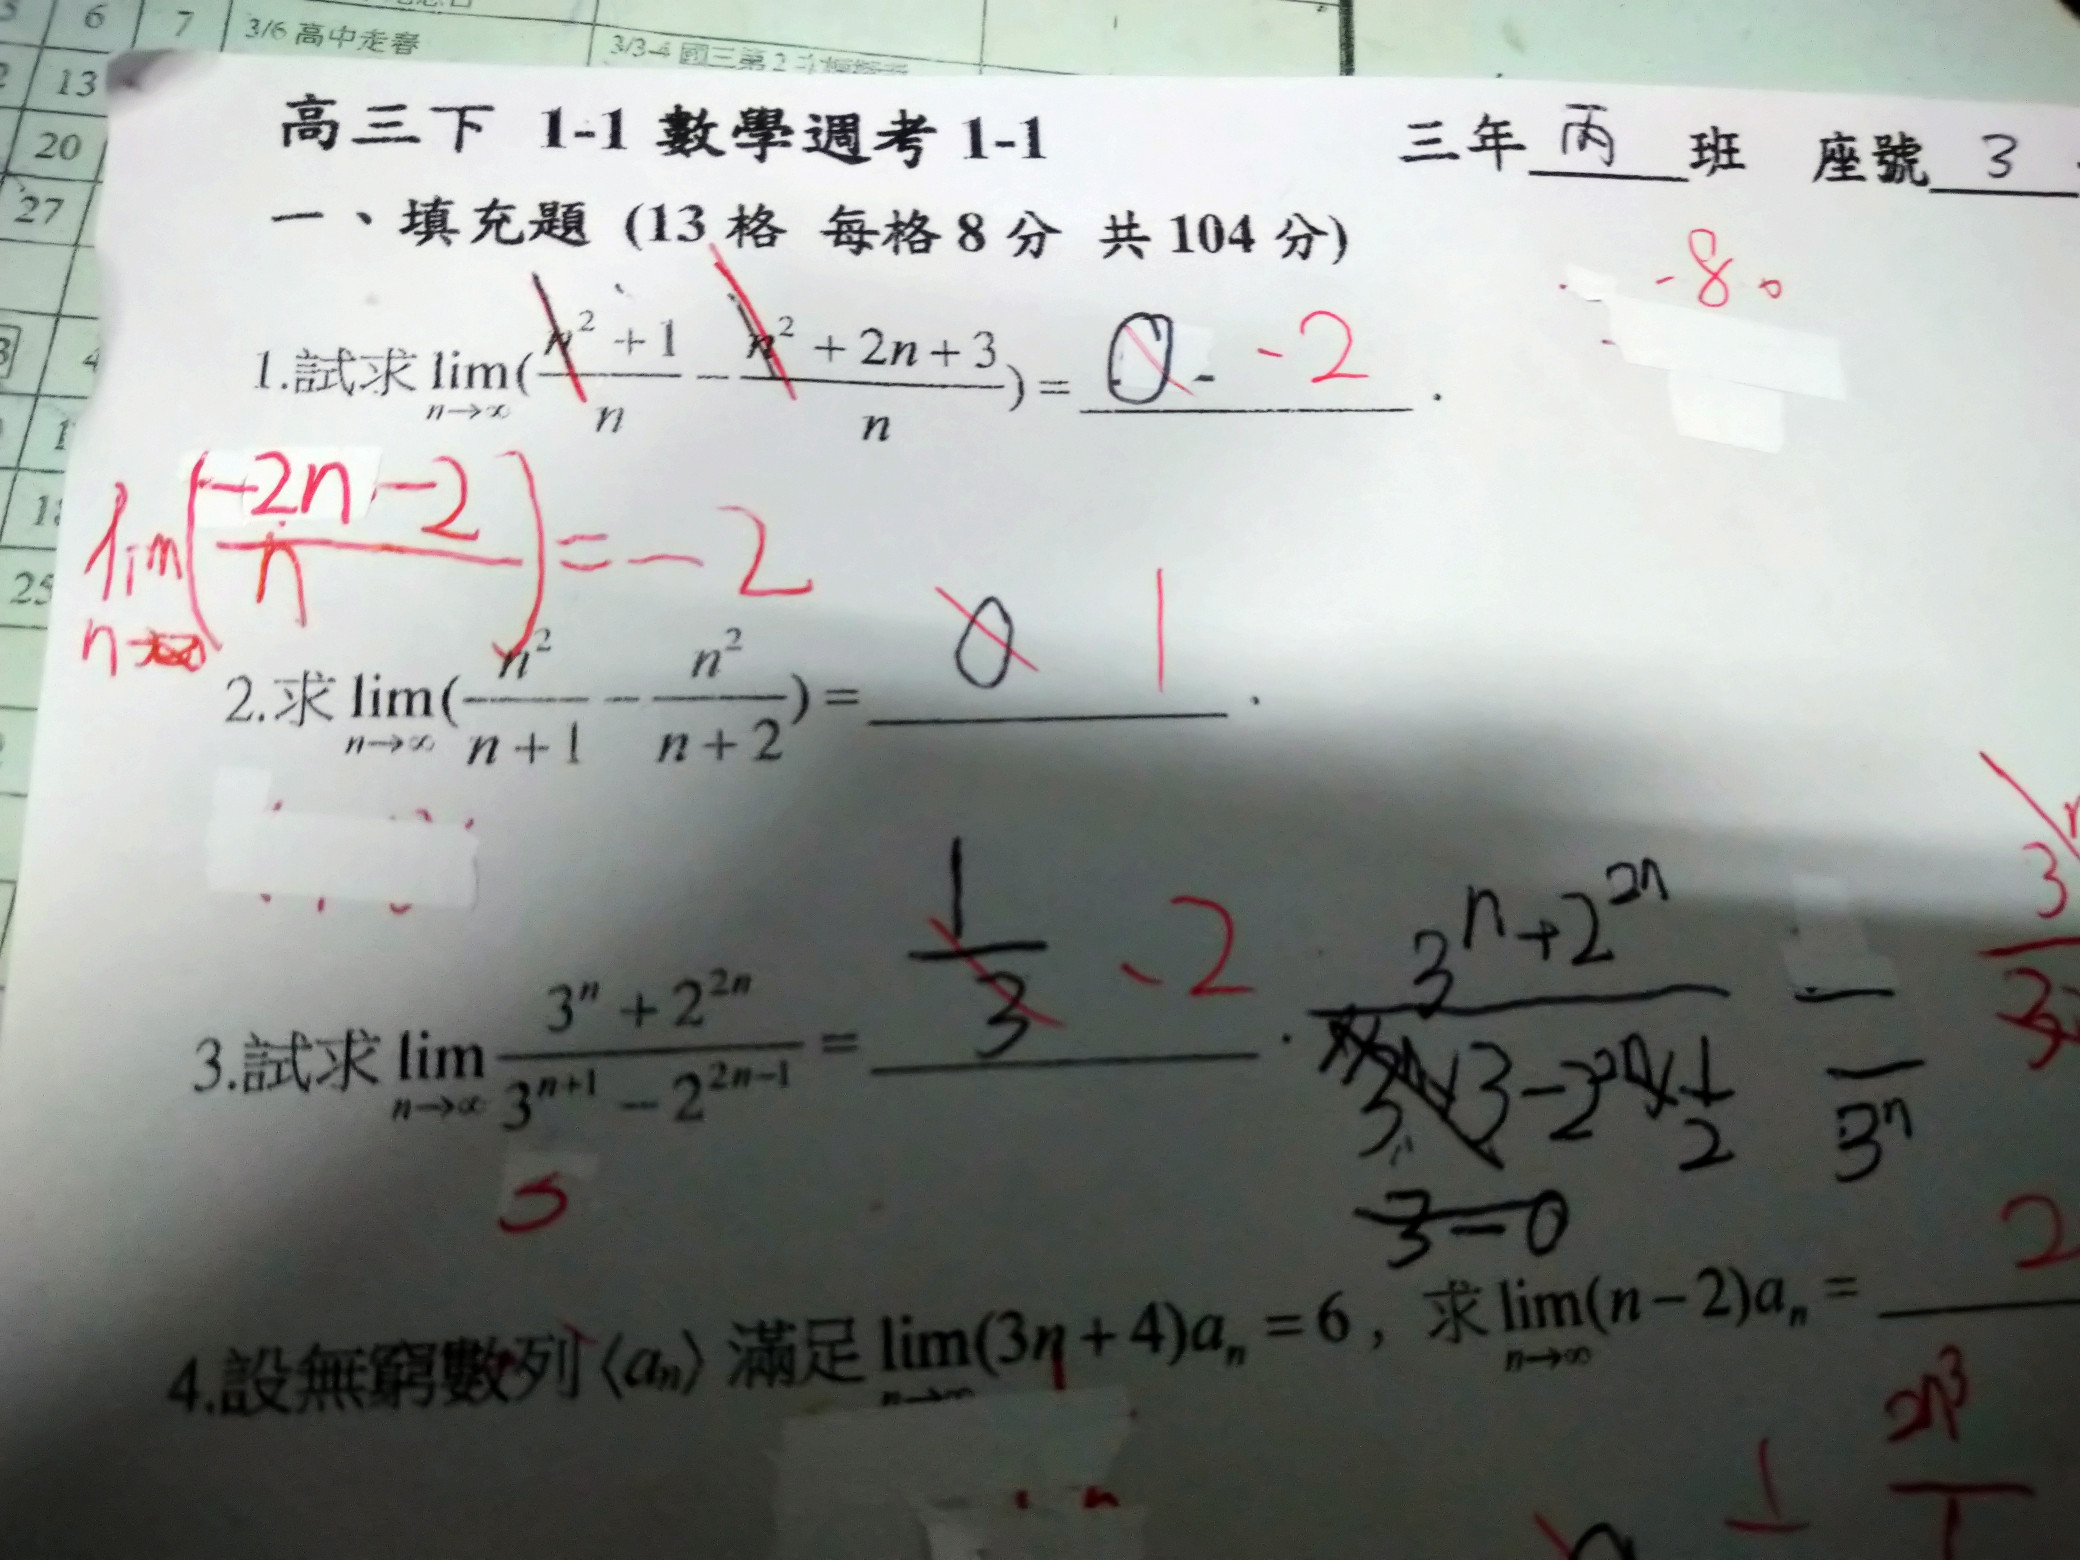 5 6 7 3/6 高中走春 3/3-4 國三第2
13
20
27
4
18
25
高三下 1-1 數學週考 1-1 三年 丙 班 座號 3
一、填充題 (13 格 每格 8 分 共 104 分)
-8。
1.試求 lim n→∞ ( n² + 1 / n − n² + 2n + 3 / n ) = 0 -2 .
lim n→∞ ( -2n - 2 / n ) = -2
2.求 lim n→∞ ( n² / n + 1 − n² / n + 2 ) = 0 1 .
3.試求 lim n→∞ 3ⁿ + 2²ⁿ / 3ⁿ⁺¹ − 2²ⁿ⁻¹ = 1/3 -2 .
3ⁿ + 2²ⁿ
3-2²ⁿ×1/2
3ⁿ
3-0
4.設無窮數列⟨aₙ⟩ 滿足 lim n→∞ (3n + 4)aₙ = 6，求 lim n→∞ (n − 2)aₙ = 2
2n³